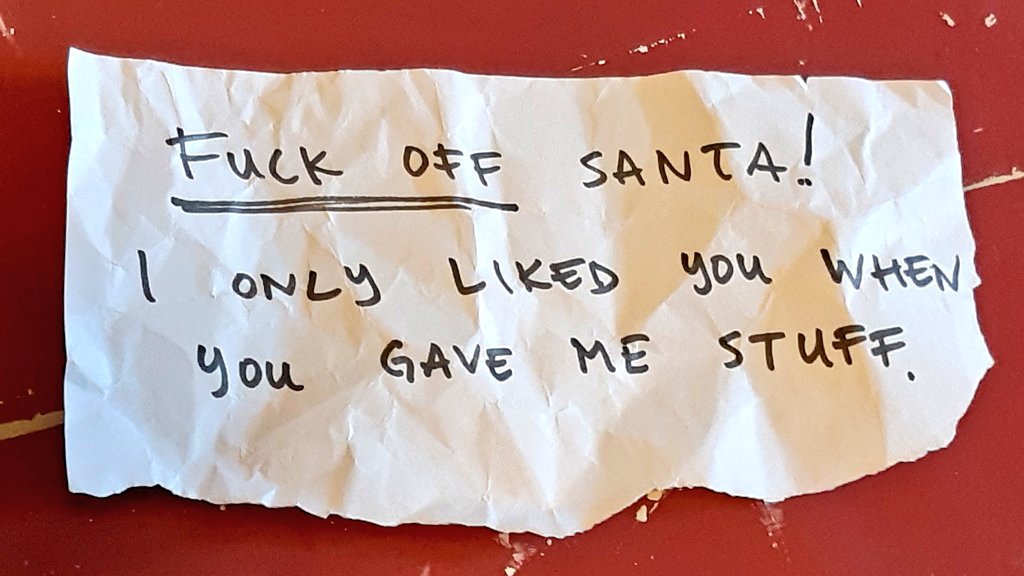 FUCK OFF SANTA!
I ONLY LIKED YOU WHEN
YOU GAVE ME STUFF.